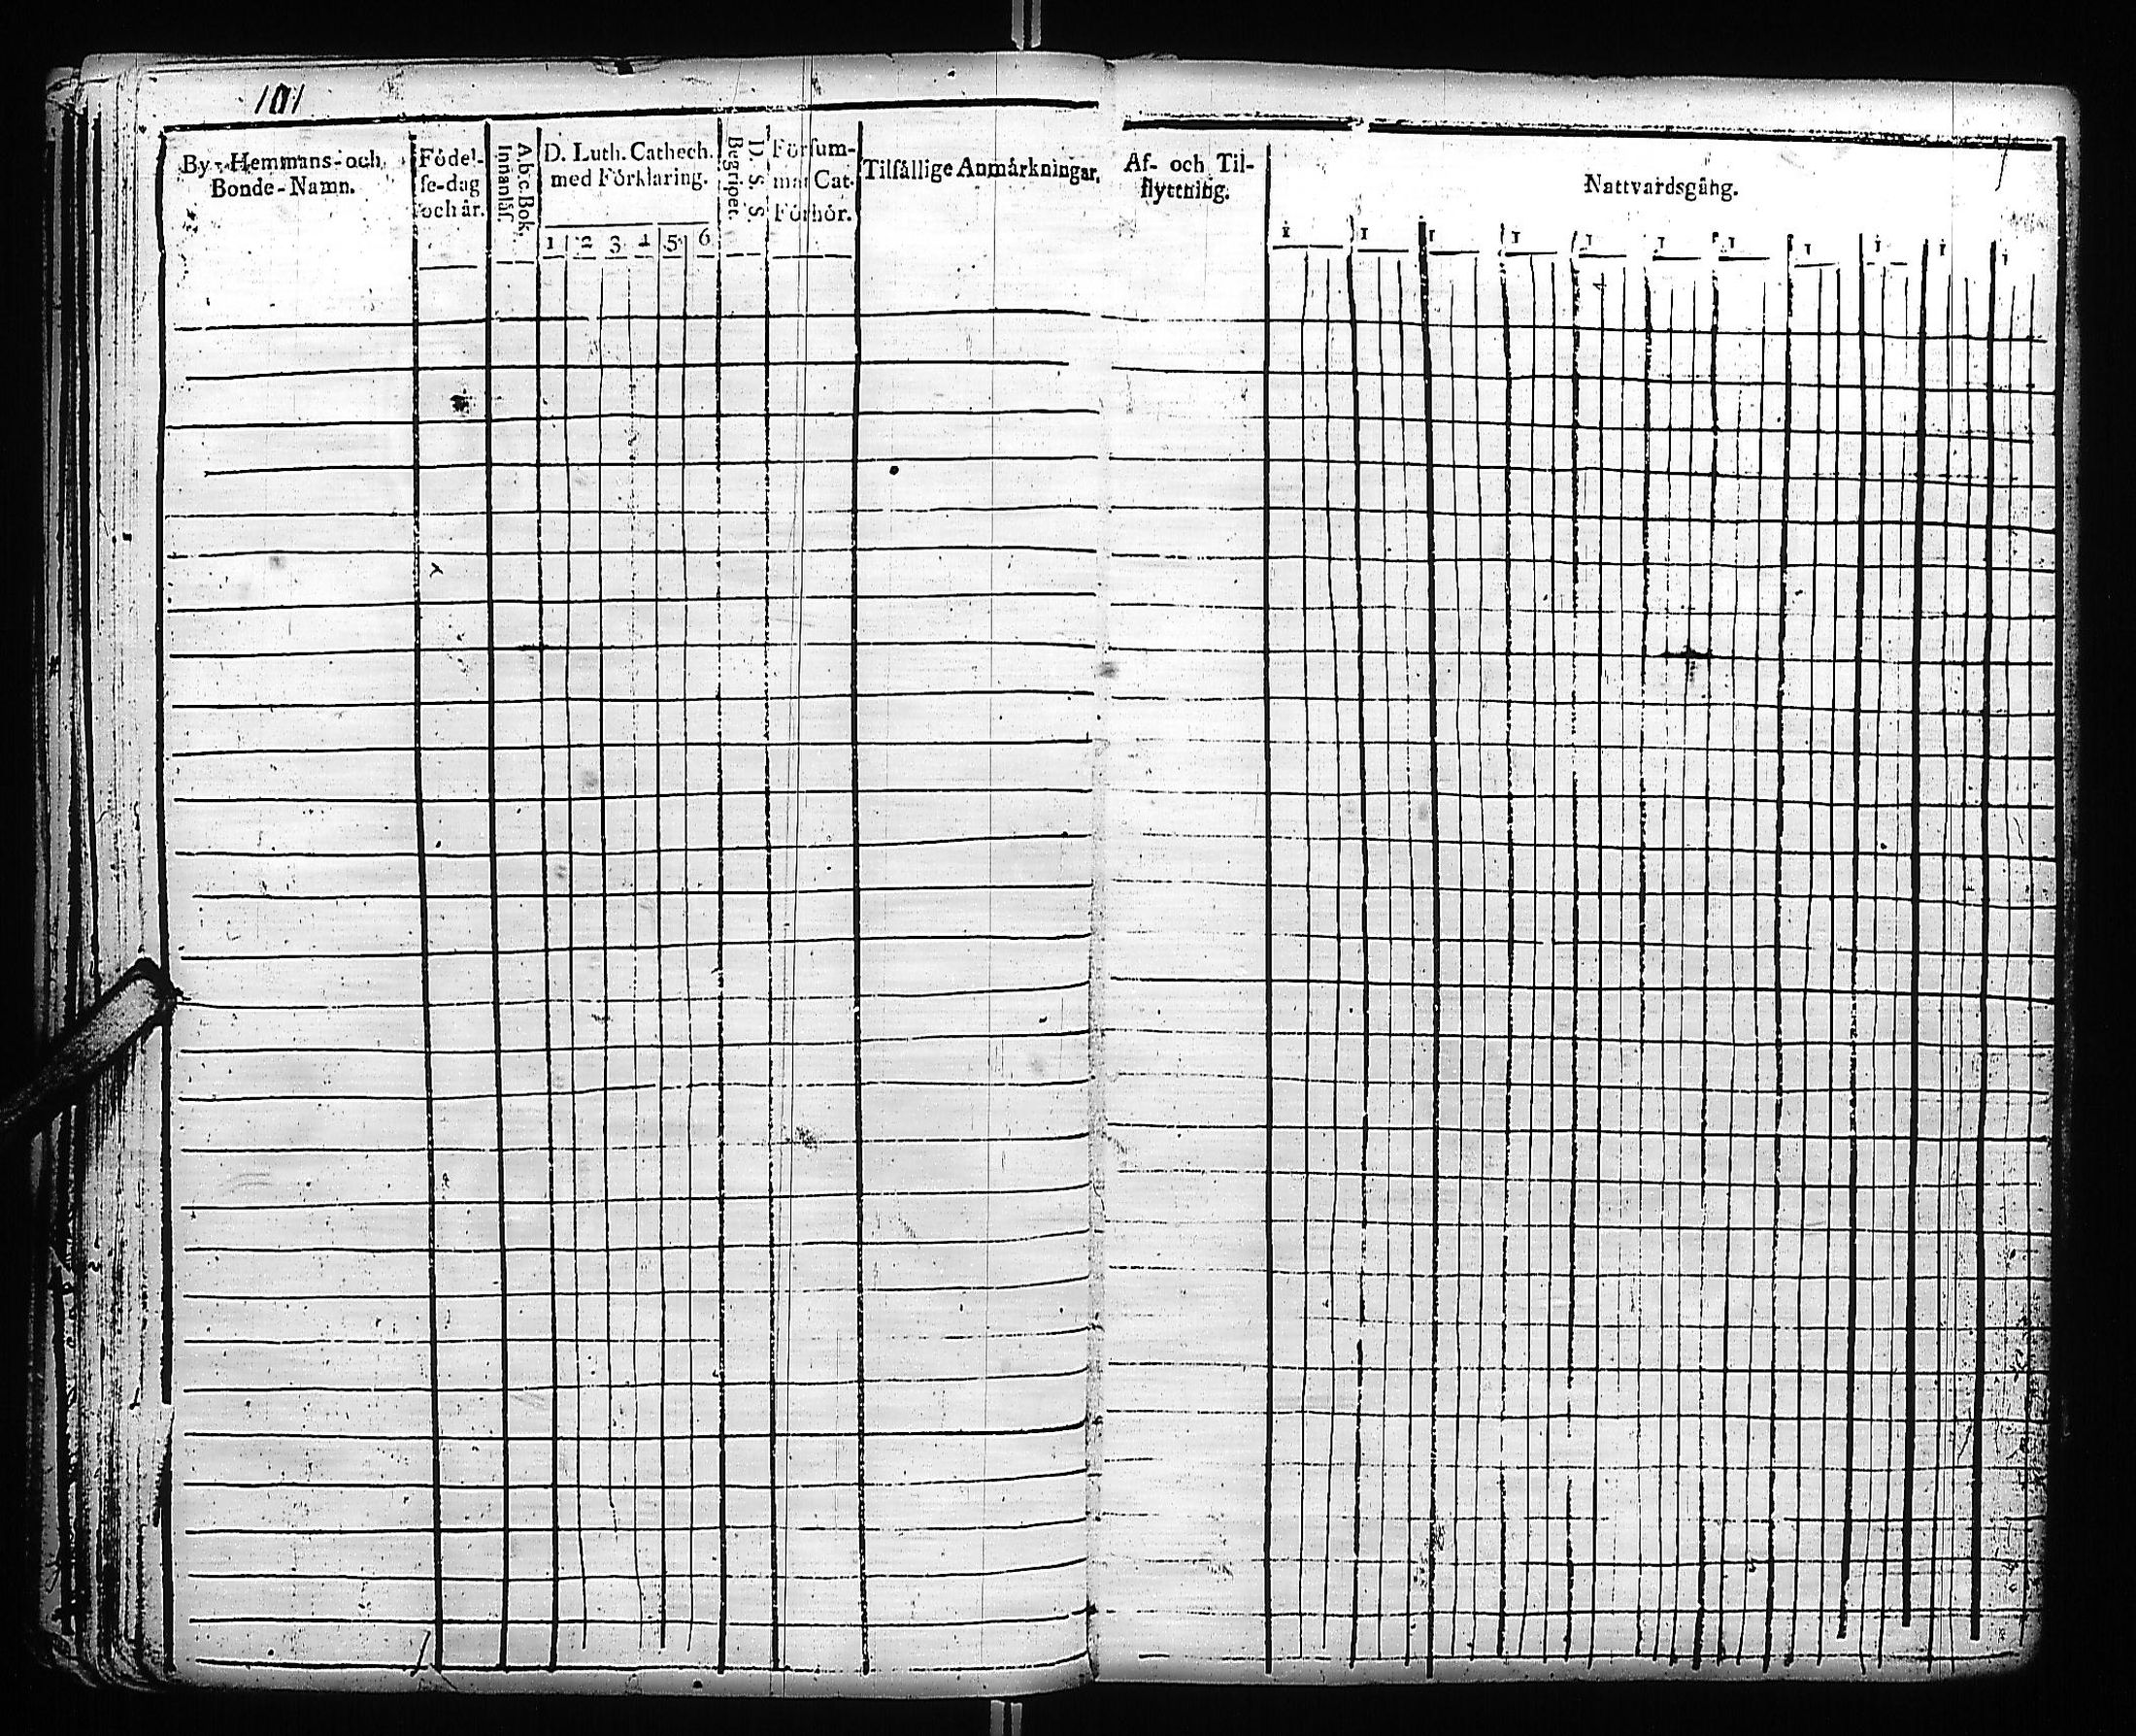 101
By- Hemmans- och
Bonde-Namn.
Födel-
se-dag
och år.
A.b.c.Bok.
Innanläs
D. Luth. Cathech.
med Förklaring.
1 2 3 4 5 6
D. S. S.
Begriper.
Försum-
mat Cat.
Förhör.
Tilfällige Anmärkningar.
Af- och Til-
flyttning.
Nattvardsgång.
1 1 1 1 1 1 1 1 1 1 1